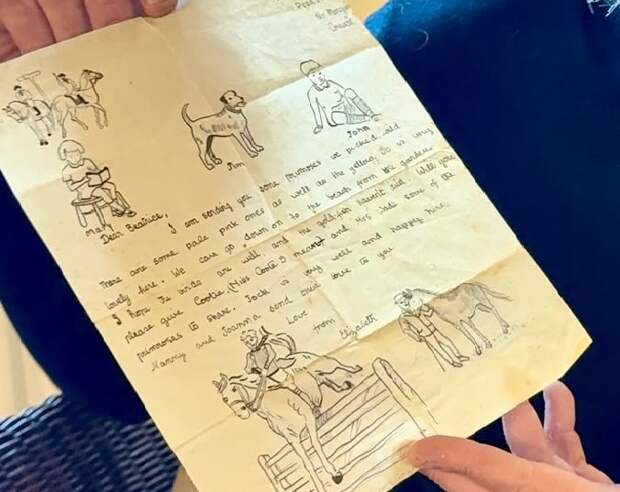 Jim
John
Mary
Dear Beatrice, I am sending you some primroses we picked and
there are some pale pink ones as well as the yellow. It is very
lovely here. We can go down on to the beach from the garden
I hope the birds are well, and the goldfish haven't died. Will you
please give Cootie, (Miss Coote I meant) and Mrs Jadi some of the
primroses to share. Jock is very well and happy here,
Nanny and Joanna send love to you
Love from
Elizabeth